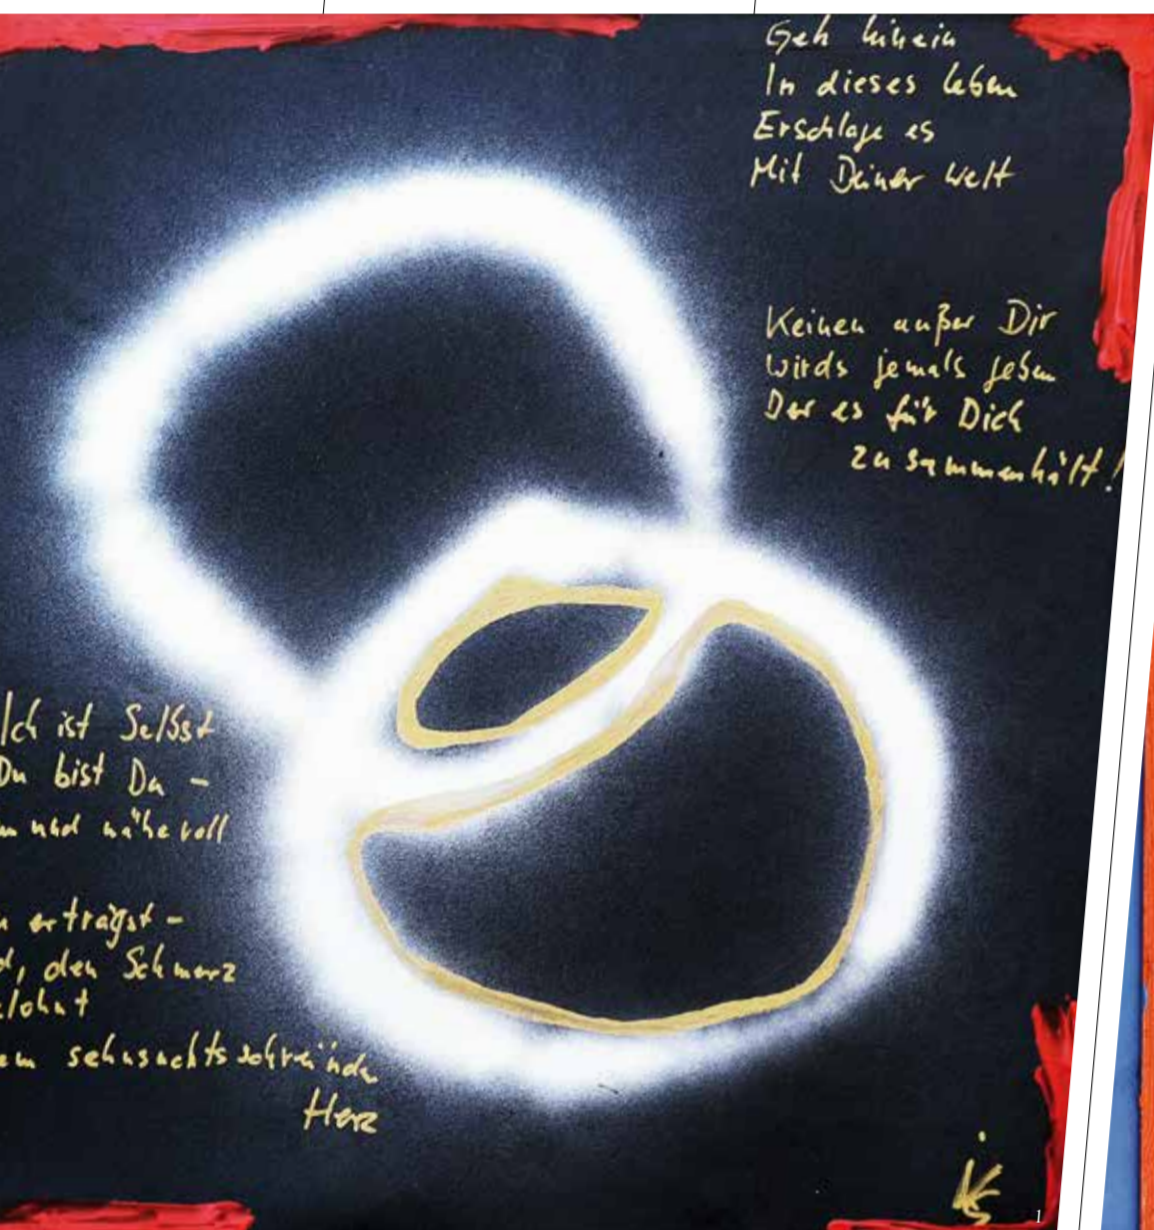 Geh hinein
In dieses Leben
Erschlage es
Mit Deiner Welt
Keinen außer Dir
wirds jemals geben
Der es für Dich
zusammenhält!
Ich ist Selbst
Du bist Da –
und nähevoll
erträgst –
den Schmerz
Herz
1